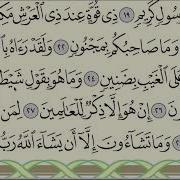 سُولٍ كَرِيمٍ ١٩ ذِي قُوَّةٍ عِندَ ذِي ٱلْعَرْشِ مَكِ
وَمَا صَاحِبُكُم بِمَجْنُونٍ ٢٢ وَلَقَدْ رَءَاهُ بِٱ
عَلَى ٱلْغَيْبِ بِضَنِينٍ ٢٤ وَمَا هُوَ بِقَوْلِ شَيْطَ
نَ ٢٦ إِنْ هُوَ إِلَّا ذِكْرٌ لِّلْعَٰلَمِينَ ٢٧ لِمَن
وَمَا تَشَآءُونَ إِلَّآ أَن يَشَآءَ ٱللَّهُ رَبُّ